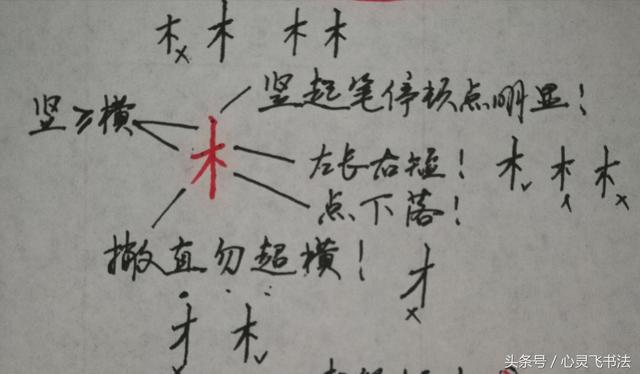 木 木 木 木
竖起笔停顿点明显!
竖≥横
木
左长右短! 木 木 木
点下落!
撇直勿超横!
头条号/心灵飞书法